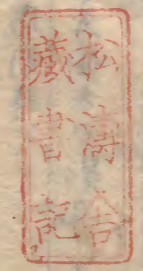 松濤舎
藏書記